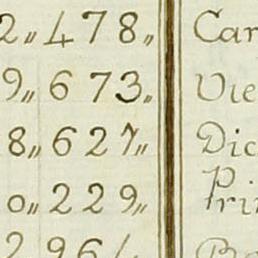 2,, 478,, Car
9,, 673,, Vie
8,, 627,, Dic
0,, 229,, Prin